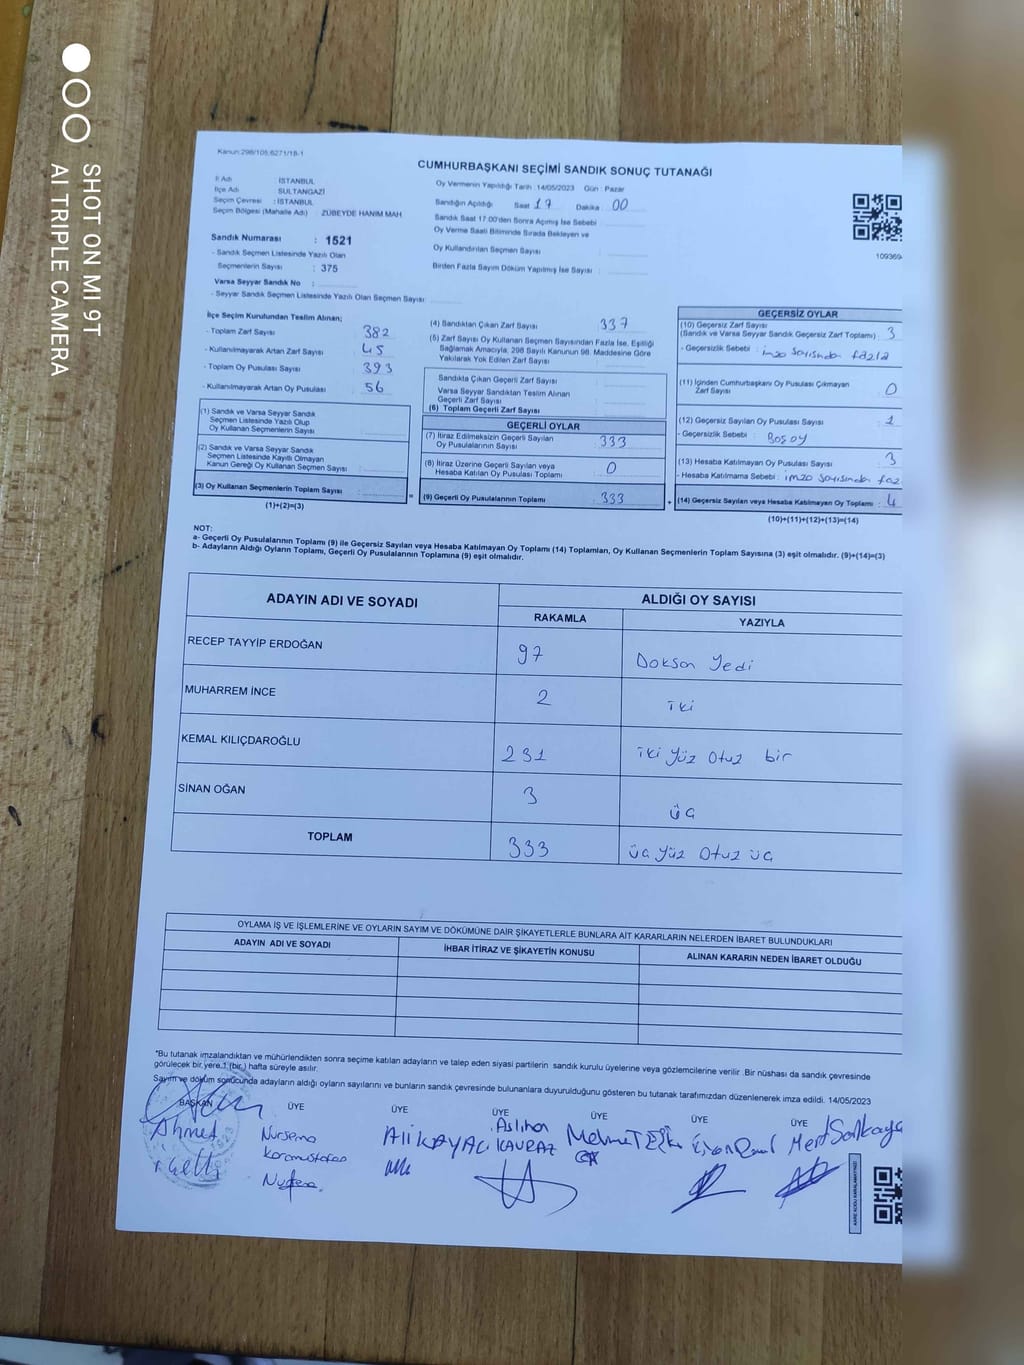 SHOT ON MI 9T
AI TRIPLE CAMERA
Kanun:298/105;6271/18-1
CUMHURBAŞKANI SEÇİMİ SANDIK SONUÇ TUTANAĞI
İl Adı : İSTANBUL
İlçe Adı SULTANGAZİ
Seçim Çevresi : İSTANBUL
Seçim Bölgesi (Mahalle Adı) : ZÜBEYDE HANIM MAH.
Sandık Numarası : 1521
- Sandık Seçmen Listesinde Yazılı Olan
Seçmenlerin Sayısı : 375
Varsa Seyyar Sandık No :
- Seyyar Sandık Seçmen Listesinde Yazılı Olan Seçmen Sayısı :
Oy Vermenin Yapıldığı Tarih :14/05/2023 Gün : Pazar
Sandığın Açıldığı Saat 17 Dakika 00
Sandık Saat 17.00'den Sonra Açılmış İse Sebebi :
Oy Verme Saati Bitiminde Sırada Bekleyen ve
Oy Kullandırılan Seçmen Sayısı :
Birden Fazla Sayım Döküm Yapılmış İse Sayısı :
109369
İlçe Seçim Kurulundan Teslim Alınan;
- Toplam Zarf Sayısı 382
- Kullanılmayarak Artan Zarf Sayısı 45
- Toplam Oy Pusulası Sayısı 393
- Kullanılmayarak Artan Oy Pusulası 56
(1) Sandık ve Varsa Seyyar Sandık
Seçmen Listesinde Yazılı Olup
Oy Kullanan Seçmenlerin Sayısı :
(2) Sandık ve Varsa Seyyar Sandık
Seçmen Listesinde Kayıtlı Olmayan
Kanun Gereği Oy Kullanan Seçmen Sayısı :
(3) Oy Kullanan Seçmenlerin Toplam Sayısı :
(1)+(2)=(3)
(4) Sandıktan Çıkan Zarf Sayısı : 337
(5) Zarf Sayısı Oy Kullanan Seçmen Sayısından Fazla İse, Eşitliği
Sağlamak Amacıyla; 298 Sayılı Kanunun 98. Maddesine Göre
Yakılarak Yok Edilen Zarf Sayısı :
Sandıkta Çıkan Geçerli Zarf Sayısı :
Varsa Seyyar Sandıktan Teslim Alınan
Geçerli Zarf Sayısı :
(6) Toplam Geçerli Zarf Sayısı :
GEÇERLİ OYLAR
(7) İtiraz Edilmeksizin Geçerli Sayılan
Oy Pusulalarının Sayısı : 333
(8) İtiraz Üzerine Geçerli Sayılan veya
Hesaba Katılan Oy Pusulası Toplamı : 0
= (9) Geçerli Oy Pusulalarının Toplamı : 333
GEÇERSİZ OYLAR
(10) Geçersiz Zarf Sayısı
(Sandık ve Varsa Seyyar Sandık Geçersiz Zarf Toplamı) : 3
- Geçersizlik Sebebi : imza sayısından fazla
(11) İçinden Cumhurbaşkanı Oy Pusulası Çıkmayan
Zarf Sayısı : 0
(12) Geçersiz Sayılan Oy Pusulası Sayısı : 1
- Geçersizlik Sebebi : Boş oy
(13) Hesaba Katılmayan Oy Pusulası Sayısı : 3
- Hesaba Katılmama Sebebi : imza sayısından faz
+ (14) Geçersiz Sayılan veya Hesaba Katılmayan Oy Toplamı : 4
(10)+(11)+(12)+(13)=(14)
NOT:
a- Geçerli Oy Pusulalarının Toplamı (9) ile Geçersiz Sayılan veya Hesaba Katılmayan Oy Toplamı (14) Toplamları, Oy Kullanan Seçmenlerin Toplam Sayısına (3) eşit olmalıdır. (9)+(14)=(3)
b- Adayların Aldığı Oyların Toplamı, Geçerli Oy Pusulalarının Toplamına (9) eşit olmalıdır.
ADAYIN ADI VE SOYADI
ALDIĞI OY SAYISI
RAKAMLA YAZIYLA
RECEP TAYYİP ERDOĞAN 97 Doksan Yedi
MUHARREM İNCE 2 iki
KEMAL KILIÇDAROĞLU 231 iki Yüz Otuz bir
SİNAN OĞAN 3 üç
TOPLAM 333 üç Yüz Otuz üç
OYLAMA İŞ VE İŞLEMLERİNE VE OYLARIN SAYIM VE DÖKÜMÜNE DAİR ŞİKAYETLERLE BUNLARA AİT KARARLARIN NELERDEN İBARET BULUNDUKLARI
ADAYIN ADI VE SOYADI İHBAR İTİRAZ VE ŞİKAYETİN KONUSU ALINAN KARARIN NEDEN İBARET OLDUĞU
"Bu tutanak imzalandıktan ve mühürlendikten sonra seçime katılan adayların ve talep eden siyasi partilerin sandık kurulu üyelerine veya gözlemcilerine verilir .Bir nüshası da sandık çevresinde
görülecek bir yere 1 (bir) hafta süreyle asılır.
Sayım ve döküm sonucunda adayların aldığı oyların sayılarını ve bunların sandık çevresinde bulunanlara duyurulduğunu gösteren bu tutanak tarafımızdan düzenlenerek imza edildi. 14/05/2023
BAŞKAN ÜYE ÜYE ÜYE ÜYE ÜYE ÜYE
Ahmet
Nursema
Karamustafa
Nursema
Ali KAYACI
Aslıhan
KAVRAZ
Mert Sarıkaya
KARE KODU KARALAMAYINIZ!